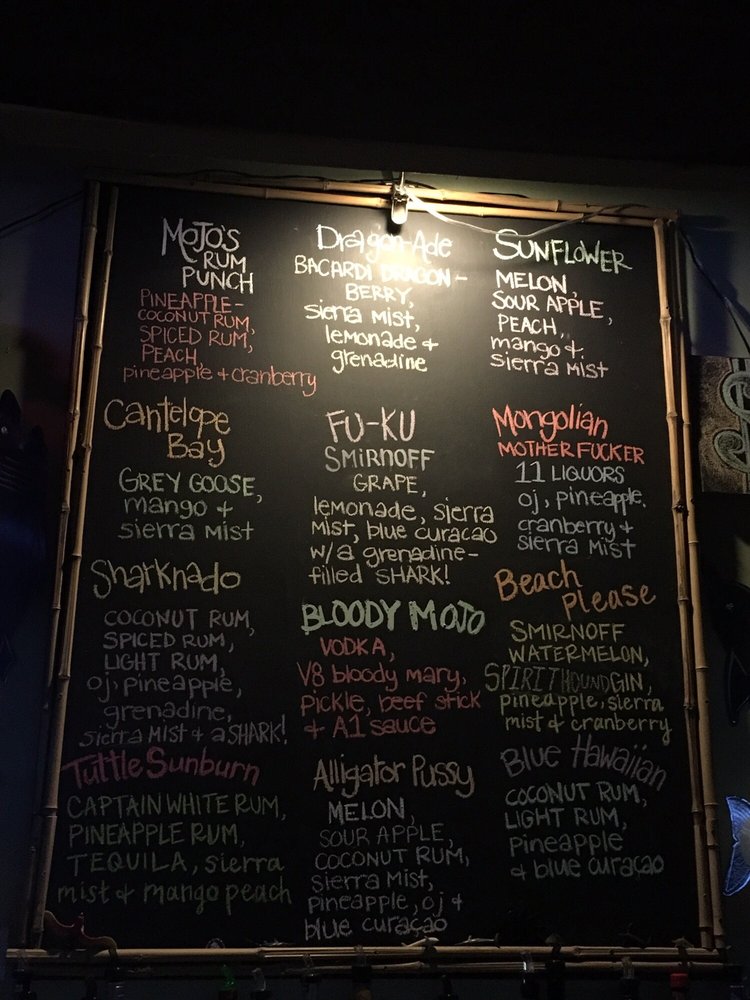 MOJO'S
RUM
PUNCH
PINEAPPLE-
COCONUT RUM,
SPICED RUM,
PEACH,
pineapple + cranberry
Dragon-Ade
BACARDI DRAGON-
BERRY,
sierra mist,
lemonade +
grenadine
SUNFLOWER
MELON,
SOUR APPLE,
PEACH,
mango +
sierra mist
Cantelope
Bay
GREY GOOSE,
mango +
sierra mist
FU-KU
SMIRNOFF
GRAPE,
lemonade, sierra
mist, blue curacao
w/a grenadine-
filled SHARK!
Mongolian
MOTHER FUCKER
11 LIQUORS
oj, pineapple,
cranberry +
sierra mist
Sharknado
COCONUT RUM,
SPICED RUM,
LIGHT RUM,
oj, pineapple,
grenadine,
sierra mist + a SHARK!
BLOODY MOJO
VODKA,
V8 bloody mary,
pickle, beef stick
+ A1 sauce
Beach
please
SMIRNOFF
WATERMELON,
SPIRITHOUND GIN,
pineapple, sierra
mist + cranberry
Tuttle Sunburn
CAPTAIN WHITE RUM,
PINEAPPLE RUM,
TEQUILA, sierra
mist + mango peach
Alligator Pussy
MELON,
SOUR APPLE,
COCONUT RUM,
sierra mist,
pineapple, oj +
blue curaçao
Blue Hawaiian
COCONUT RUM,
LIGHT RUM,
pineapple
+ blue curaçao